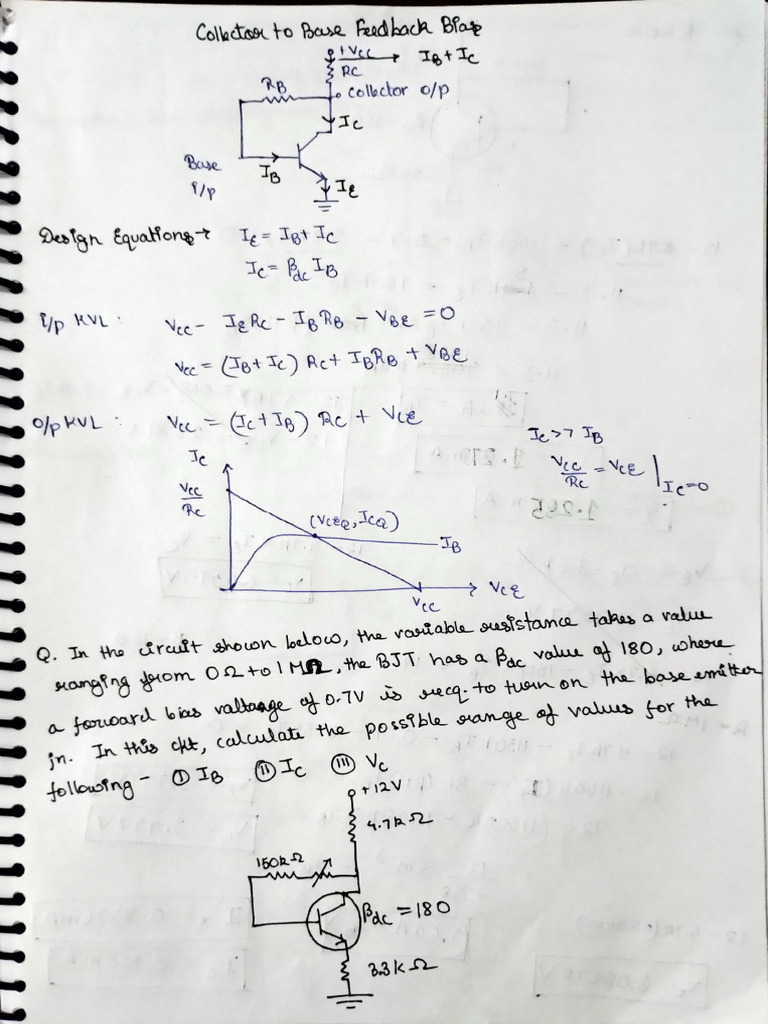 Collector to Base Feedback Bias
+Vcc → IB + IC
RC
RB
collector o/p
IC
Base
i/p
IB
IE
Design Equations → IE = IB + IC
IC = βdc IB
i/p KVL : Vcc - IERC - IBRB - VBE = 0
Vcc = (IB + IC) RC + IBRB + VBE
o/p KVL : Vcc = (IC + IB) RC + VCE
IC >> IB
Vcc/RC = VCE | IC=0
IC
Vcc/RC
(VCEQ, ICQ)
IB
VCE
Vcc
Q. In the circuit shown below, the variable resistance takes a value
ranging from 0Ω to 1MΩ, the BJT has a βdc value of 180, where
a forward bias valtange of 0.7V is req. to turn on the base emitter
jn. In this ckt, calculate the possible range of values for the
following - ① IB ② IC ③ VC
+12V
4.7kΩ
150kΩ
βdc = 180
3.3kΩ